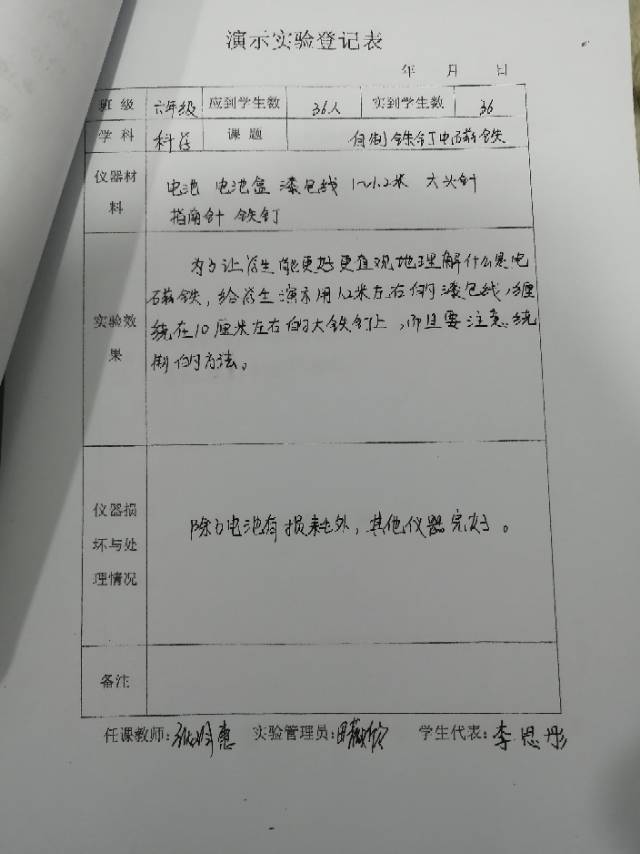 演示实验登记表
年 月 日
班级 六年级 应到学生数 36人 实到学生数 36
学科 科学 课题 自制铁钉电磁铁
仪器材料 电池 电池盒 漆包线 1~1.2米 大头针
指南针 铁钉
实验效果 为了让学生能更好更直观地理解什么是电
磁铁，给学生演示用1.2米左右的漆包线,缠
绕在10厘米左右的大铁钉上,而且要注意绕
制的方法。
仪器损坏与处理情况 除了电池有损耗外，其他仪器完好。
备注
任课教师: 实验管理员: 学生代表:李思彤